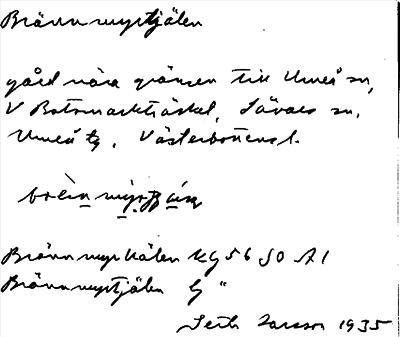 Brännmyrtjälen
gård nära gränsen till Umeå sn,
V Botsmarkträsket, Sävars sn.
Umeå tg, Västerbottens l.
Brännmyrkälen kg 56 SO A1
Brännmyrtjälen G "
Seth Larsson 1935